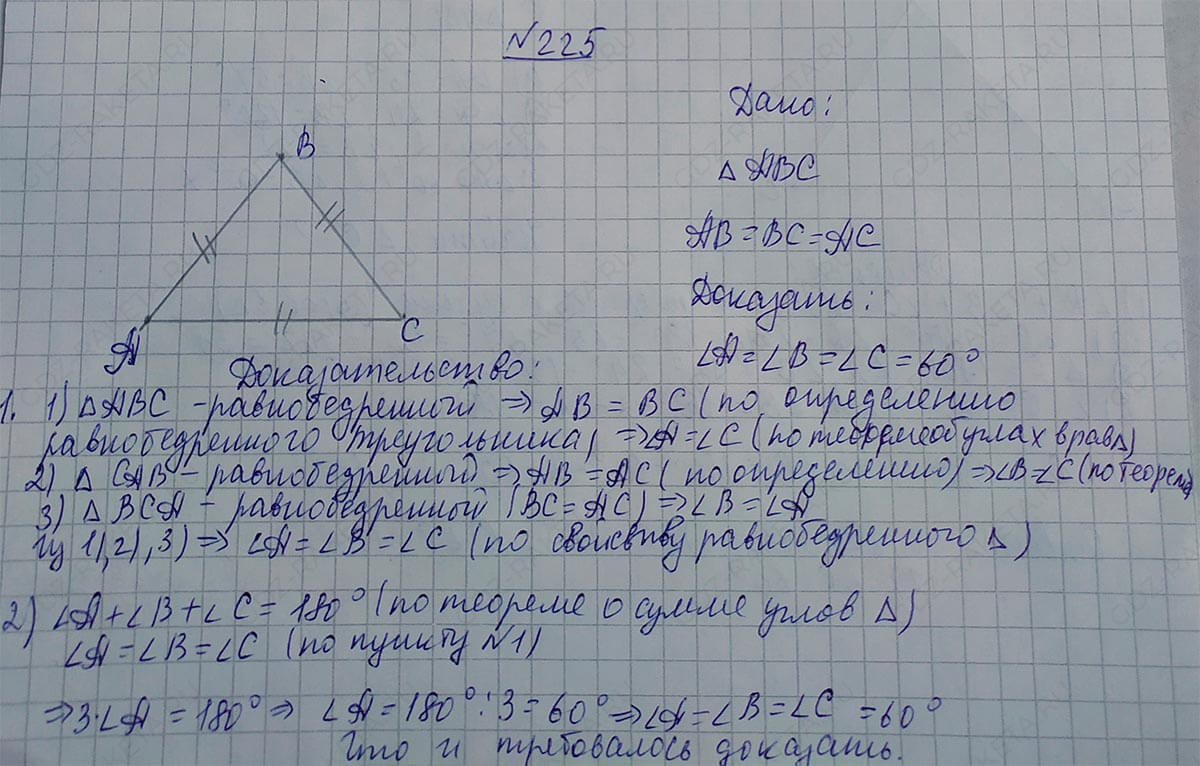 №225
Дано:
△ABC
AB=BC=AC
Доказать:
∠A=∠B=∠C=60°
B
A
C
Доказательство:
1. 1) △ABC -равнобедренный ⇒ AB = BC (по определению
равнобедренного треугольника) ⇒∠A=∠C (по теореме об углах в рав△)
2) △ CAB - равнобедренный ⇒ AB = AC (по определению) ⇒∠B=∠C (по теореме)
3) △ BCA - равнобедренный (BC=AC) ⇒∠B=∠A
Из 1),2),3) ⇒ ∠A=∠B=∠C (по свойству равнобедренного △)
2) ∠A+∠B+∠C=180° (по теореме о сумме углов △)
∠A=∠B=∠C (по пункту №1)
⇒3·∠A=180°⇒ ∠A=180°:3=60°⇒∠A=∠B=∠C =60°
Что и требовалось доказать.